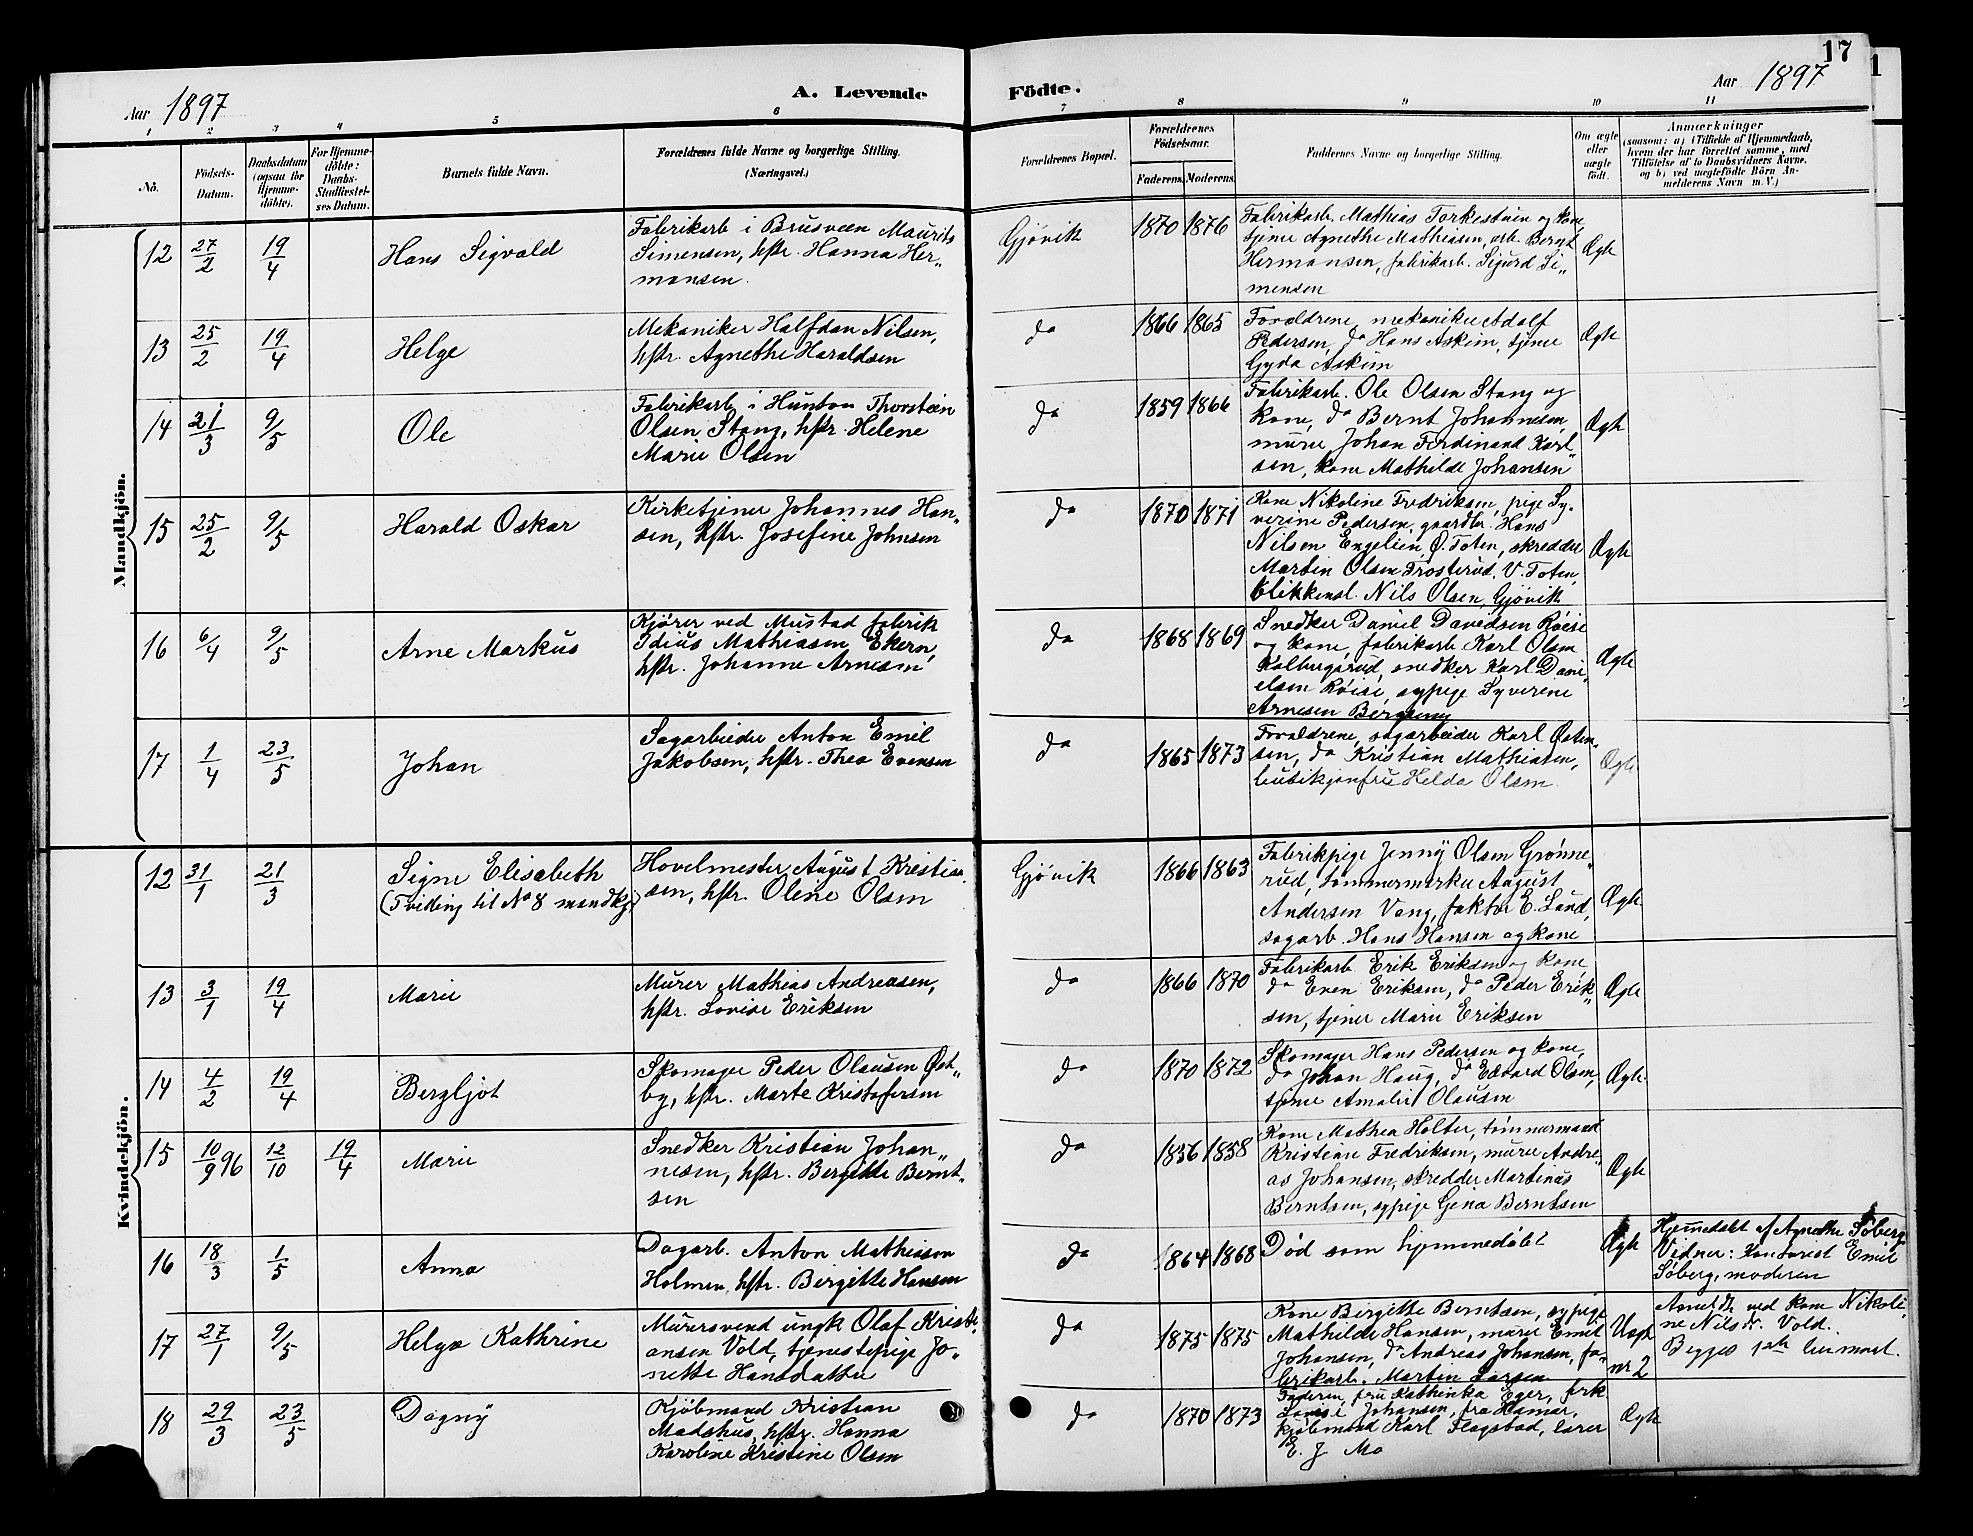 17
Aar 1897
A. Levende Födte.
Aar 1897
1 2 3 4 5 6 7 8 9 10 11
No.
Födsels-
Datum.
Daabsdatum
(ogsaa for
Hjemme-
döbte).
For Hjemme-
döbte:
Daabs-
Stadfæstel-
ses Datum.
Barnets fulde Navn.
Forældrenes fulde Navne og borgerlige Stilling.
(Næringsvei.)
Forældrenes Bopæl.
Forældrenes
Födselsaar.
Faderens. Moderens.
Faddernes Navne og borgerlige Stilling.
Om ægte
eller
uægte
født.
Anmærkninger
(saasom: a) i Tilfælde af Hjemmedaab,
hvem der har forrettet samme, med
Tilføielse af to Daabsvidners Navne,
og b) ved uægtefödte Börn An-
melderens Navn m. V.)
Mandkjön.
12 27/2 19/4 Hans Sigvald
Fabrikarb i Brusveen Maurits
Simensen, hstr. Hanna Her„
mansen.
Gjøvik 1870 1876
Fabrikarb. Mathias Torkestuen og kone,
tjener Agnethe Mathiasen, arb. Bernt
Hermansen, fabrikarb. Sigurd Si„
mensen
Ægte
13 25/2 19/4 Helge
Mekaniker Halfdan Nilsen,
hstr. Agnethe Haraldsen
do 1866 1865
Forældrene, mekaniker Adolf
Pedersen, do Hans Askim, tjener
Gyda Askim
Ægte
14 21/3 9/5 Ole
Fabrikarb i Hunton Thorstein
Olsen Stang, hstr. Helene
Marie Olsen
do 1859 1866
Fabrikarb. Ole Olsen Stang og
kone, do Bernt Johannesen,
murer Johan Ferdinand Karl„
sen, kone Mathilde Johansen
Ægte
15 25/2 9/5 Harald Oskar
Kirketjener Johannes Han„
sen, hstr. Josefine Johnsen
do 1870 1871
Kone Nikoline Fredriksen, pige Sy„
verine Pedersen, gaardbr. Hans
Nilsen Engelien, Ø. Toten, skrædder
Martin Olsen Trosterud, V. Toten,
blikkensl. Nils Olsen, Gjøvik
Ægte
16 6/4 9/5 Arne Markus
Kjører ved Mustad fabrik
Idius Mathiasen Ekern,
hstr. Johanne Arnesen
do 1868 1869
Snedker Daniel Davidsen Røise
og kone, fabrikarb Karl Olsen
Kalbergsrud, snedker Karl Dani„
elsen Røise, sypige Syverine
Arnesen Bergseng
Ægte
17 1/4 23/5 Johan
Sagarbeider Anton Emil
Jakobsen, hstr. Thea Evensen
do 1865 1873
Forældrene, sagarbeider Karl Østen„
sen, do Kristian Mathiasen,
butikjomfru Helda Olsen
Ægte
Kvindekjön.
12 31/1 21/3 Signe Elisabeth
(Tvilling til No 8 mandkj.)
Hovelmester August Kristian„
sen, hstr. Oline Olsen
Gjøvik 1866 1863
Fabrikpige Jenny Olsen Grønne„
rud, tømmermerker August
Andersen Vang, faktor E. Lund,
sagarb. Hans Hansen og kone
Ægte
13 3/1 19/4 Marie
Murer Mathias Andreasen,
hstr. Lovise Eriksen
do 1866 1870
Fabrikarb Erik Eriksen og kone
do Even Eriksen, do Peder Erik„
sen, tjener Marie Eriksen
Ægte
14 4/2 19/4 Bergljot
Skomager Peder Olausen Øst„
by, hstr. Marte Kristofersen
do 1870 1872
Skomager Hans Pedersen og kone,
do Johan Haug, do Edvard Olsen,
tjener Amalie Olausen
Ægte
15 10/9 96 12/10 19/4 Marie
Snedker Kristian Johan„
nesen, hstr. Bergitte Bernt„
sen
do 1856 1858
Kone Mathea Holter, tømmermand
Kristian Fredriksen, murer Andre„
as Johansen, skredder Martinus
Berntsen, sypige Gina Berntsen
Ægte
16 18/3 1/5 Anna
Dagarb. Anton Mathiasen
Holmen, hstr. Birgitte Hansen
do 1864 1868
Død som hjemmedøbt
Ægte
Hjemedøbt af Agnethe Søberg
Vidner: Kontorist Emil
Søberg, moderen
17 27/1 9/5 Helga Kathrine
Murersvend ungk Olaf Kristi„
ansen Vold, tjenestepige Jo„
nette Hansdatter
do 1875 1875
Kone Birgitte Berntsen, sypige
Mathilde Hansen, murer Emil
Johansen, do Andreas Johansen, fa„
brikarb. Martin Larsen
Uægte
nr 2
Anmeldt ved kone Nikoli„
ne Nilsdr. Vold.
Begges 1ste leiermaal.
18 29/3 23/5 Dagny
Kjøbmand Kristian
Madshus, hstr. Hanna
Karoline Kristine Olsen
do 1870 1873
Faderen, fru Kathinka Eger, frk
Lovise Johansen, fra Hamar,
kjøbmand Karl Flagstad, lærer
E. J. Mo
Ægte